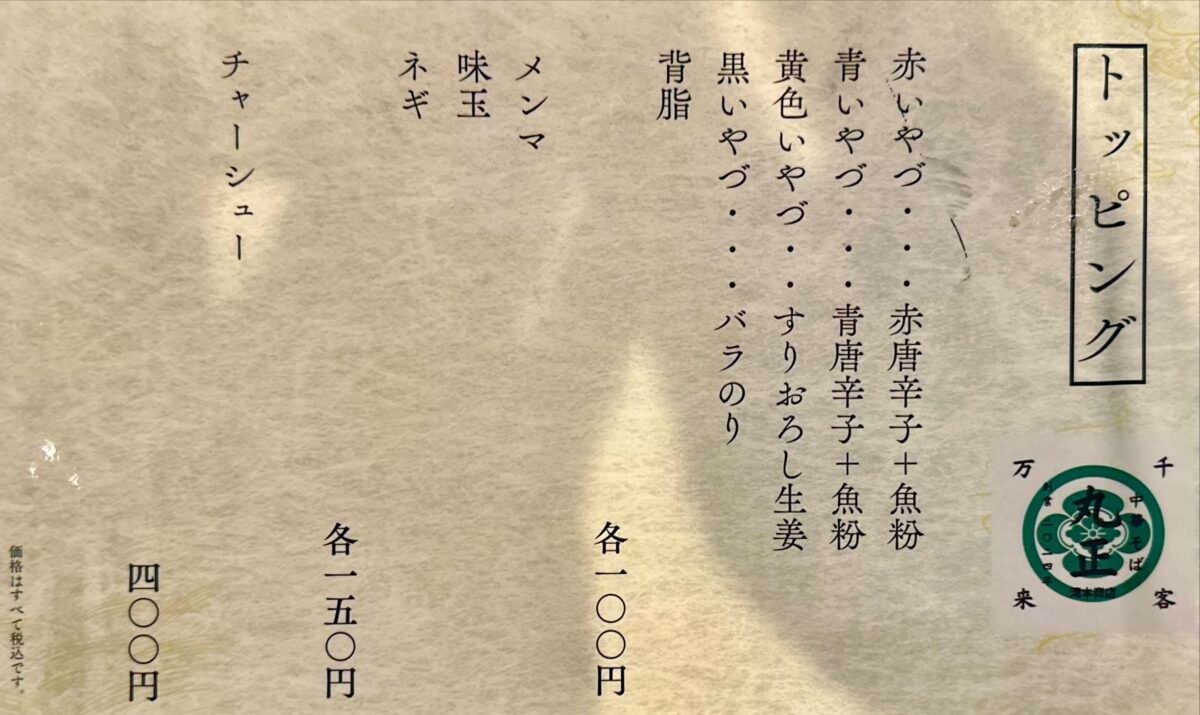 トッピング
千客万来
中華そば
丸正
滝本商店
創業二〇一四年
赤いやづ・・・赤唐辛子＋魚粉
青いやづ・・・青唐辛子＋魚粉
黄色いやづ・・すりおろし生姜
黒いやづ・・・バラのり
背脂
各一〇〇円
メンマ
味玉
ネギ
各一五〇円
チャーシュー
四〇〇円
価格はすべて税込です。